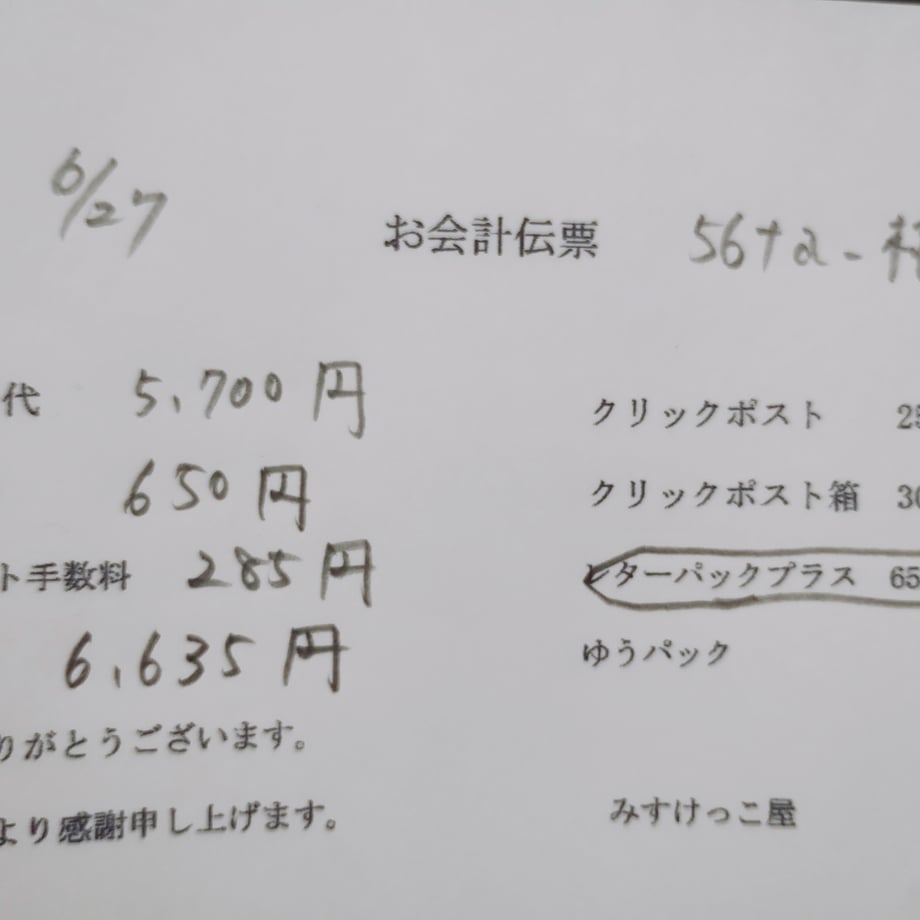 6/27
お会計伝票
代 5,700円
650円
ト手数料 285円
6,635円
りがとうございます。
より感謝申し上げます。
クリックポスト
クリックポスト箱
レターパックプラス
ゆうパック
みすけっこ屋